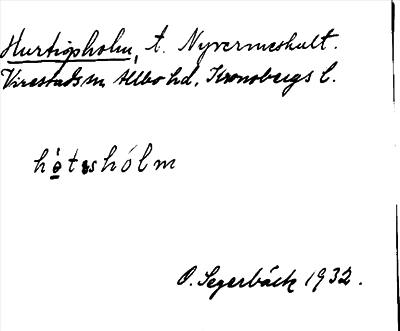 Hurtigsholm, t. Nyvermeshult.
Virestads sn, Allbo hd, Kronobergs l.
hó̲tsshólm
P. Segerbäck 1932.